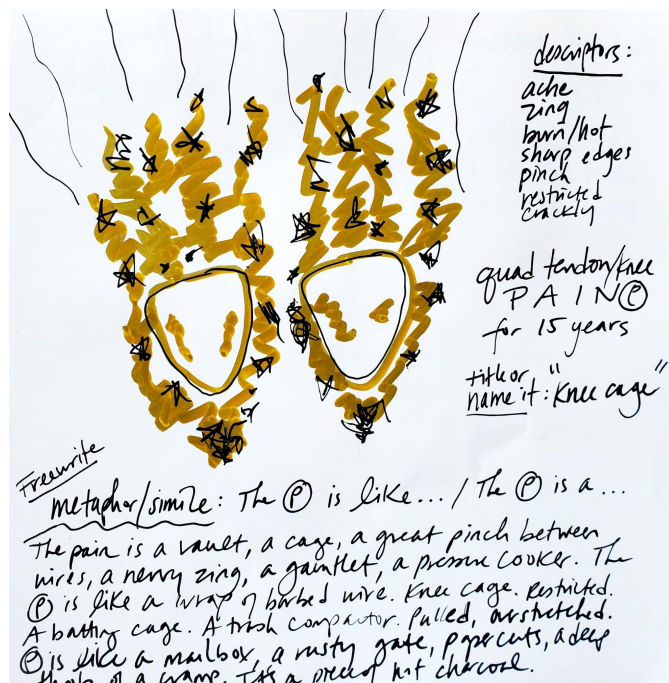 descriptors:
ache
zing
burn/hot
sharp edges
pinch
restricted
crackly
quad tendon/knee
PAIN Ⓟ
for 15 years
title or
name it: "Knee cage"
Freewrite
metaphor/simile: The Ⓟ is like... / The Ⓟ is a...
The pain is a vault, a cage, a great pinch between
wires, a nervy zing, a gauntlet, a pressure cooker. The
Ⓟ is like a wrap of barbed wire. Knee cage. Restricted.
A batting cage. A trash compactor. Pulled, overstretched.
Ⓟ is like a mailbox, a rusty gate, papercuts, a deep
of a cramp. It's a piece of hot charcoal.